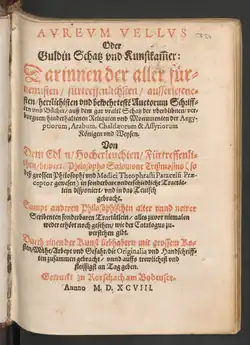 AVREVM VELLVS
Oder
Guldin Schatz vnd Kunstkam̄er:
Darinnen der aller für-
nemisten/ fürtreffenlichsten/ ausserlesene-
sten/ herrlichisten vnd bewehrtesten Auctorum Schriff-
ten vnd Bücher/ auß dem gar vralten Schatz der vberblibnen/ ver-
borgnen/ hinderhaltenen Reliquien vnd Monumenten der Aegy-
ptiorum, Arabum, Chaldæorum & Assyriorum
Königen vnd Weysen.
Von
Dem Edl̄ n/ Hocherleuchten/ Fürtreffenli-
chen/ Philosopho Salomone Trißmosino (so
deß grossen Philosophi vnd Medici Theophrasti Paracelsi Præ-
ceptor gewesen) in sonderbare vnderschiedliche Tractät-
lein disponiert/ vnd in das Teutsch
gebracht.
Sampt anderen Philosophischen alter vnnd newer
Scribenten sonderbaren Tractätlein/ alles zuvor niemalen
weder erhört noch gesehen/ wie der Catalogus zu-
verstehen gibt.
Durch einen der Kunst liebhabern mit grossem Ko-
sten/ Mühe/ Arbeyt vnd Gefahr/ die Originalia vnd Handschriff-
ten zusammen gebracht/ vnnd auffs trewlichest vnd
fleissigst an Tag geben.
Getruckt zu Rorschach am Bodensee/
Anno M. D. XCVIII.